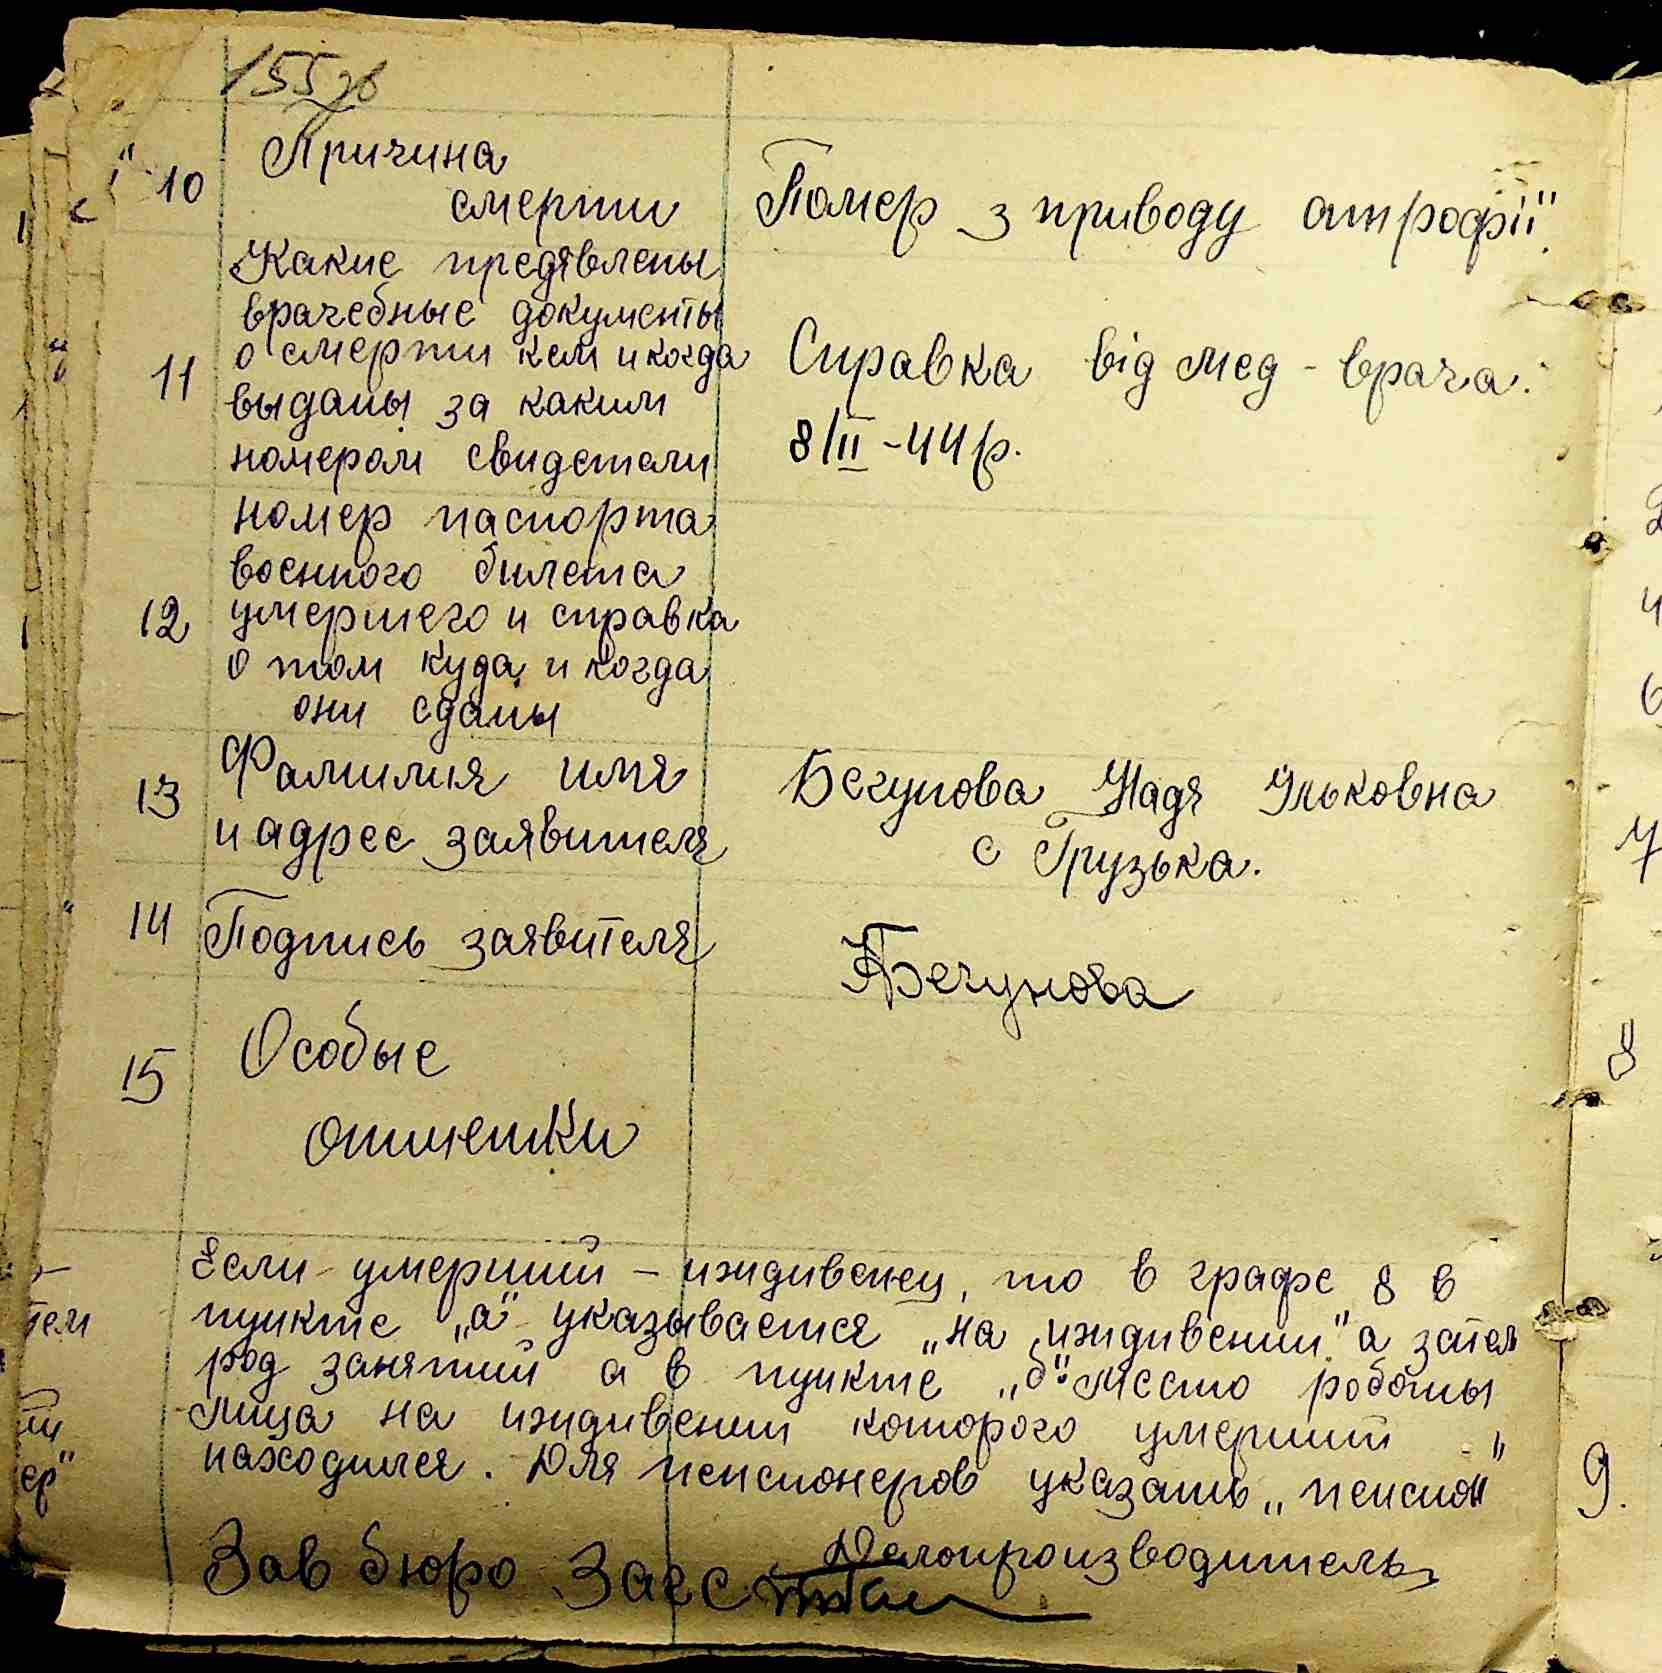 155 зв
10 Причина
смерти
Помер з приводу атрофії"
Какие предявлены
врачебные документы
о смерти кем и когда
11 выданы за каким
номером свидетели
Справка від мед - врача.
8/II - 44 р.
номер паспорта
военного билета
12 умершего и справка
о том куда и когда
они сданы
13 Фамилия имя
и адрес заявителя
Бегунова Надя Ільковна
с Грузька.
14 Подпись заявителя
Бегунова
15 Особые
отметки
Если умерший - иждивенец, то в графе 8 в
пункте „а" указывается „на иждивении" а затем
род занятий а в пункте „б" место работы
лица на иждивении которого умерший
находился. Для пенсионеров указать „пенсион"
Делопроизводитель
Зав бюро Загс